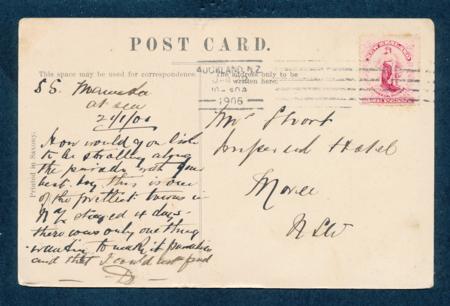 POST CARD.
This space may be used for correspondence.
The address only to be
written here.
AUCKLAND. N.Z.
1906
NEW ZEALAND
Printed in Saxony.
S S.
at sea
How would you like
to be strolling along
the with your
best boy this is one
of the prettiest towns in
N Z stayed 4 days
there was only one thing
wanting to make it
and that I could not find
Mr Short
Imperial Hotel
Moree
NSW